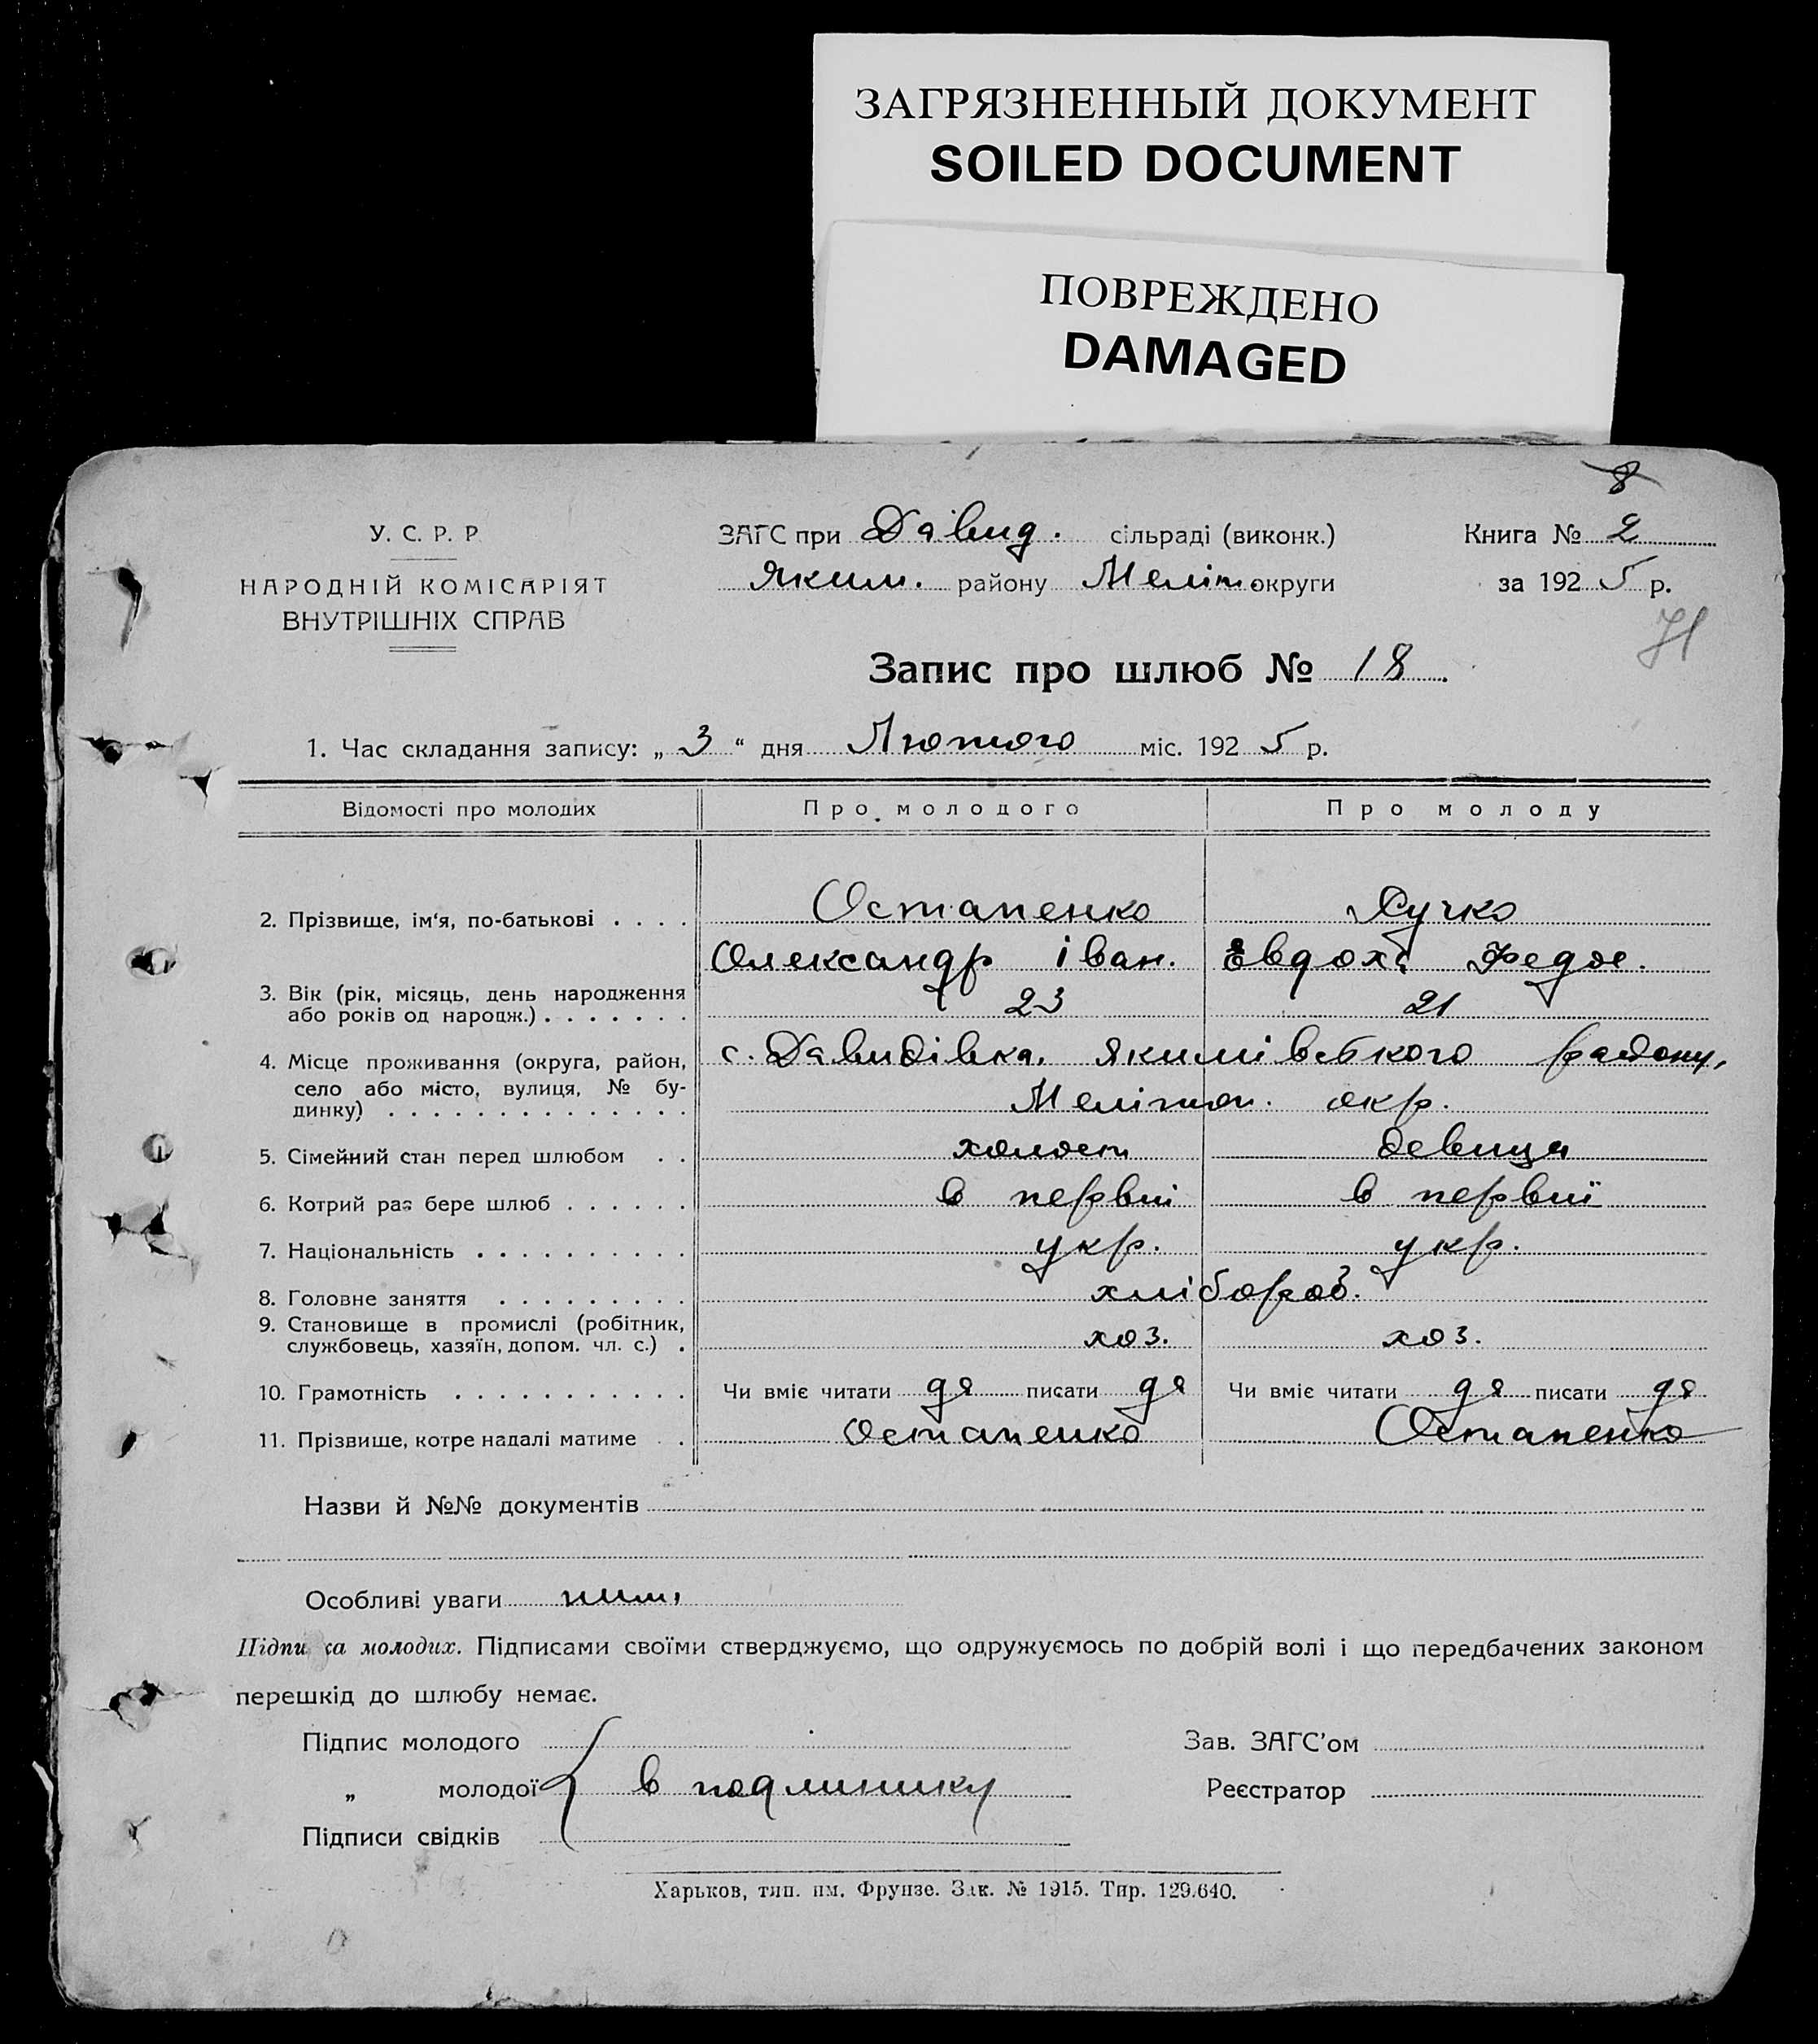 ЗАГРЯЗНЕННЫЙ ДОКУМЕНТ
SOILED DOCUMENT
ПОВРЕЖДЕНО
DAMAGED
8
У. С. Р. Р
НАРОДНІЙ КОМІСАРІЯТ
ВНУТРІШНІХ СПРАВ
ЗАГС при Давид. сільраді (виконк.)
Яким. району Меліт округи
Книга № 2
за 1925 р.
71
Запис про шлюб № 18.
1. Час складання запису: „3“ дня Лютого міс. 1925 р.
Відомості про молодих Про молодого Про молоду
2. Прізвище, ім'я, по-батькові . . . . Остапенко Хучко
Олександр Іван. Евдох. Федос.
3. Вік (рік, місяць, день народження
або років од народж.) . . . . . . . 23 21
4. Місце проживання (округа, район, с. Давидівка, Якимівського району,
село або місто, вулиця, № бу-
динку) . . . . . . . . . . . . . . . Меліто. окр.
5. Сімейний стан перед шлюбом . . холост девица
6. Котрий раз бере шлюб . . . . . . в первиі в первиї
7. Національність . . . . . . . . . . укр. укр.
8. Головне заняття . . . . . . . . . хлібороб.
9. Становище в промислі (робітник,
службовець, хазяїн, допом. чл. с.) . хоз. хоз.
10. Грамотність . . . . . . . . . . . Чи вміє читати да писати да Чи вміє читати да писати да
11. Прізвище, котре надалі матиме . . Остапенко Остапенко
Назви й №№ документів
Особливі уваги
Підпи ка молодих. Підписами своїми стверджуємо, що одружуємось по добрій волі і що передбачених законом
перешкід до шлюбу немає.
Підпис молодого
„ молодої в подлинику
Підписи свідків
Зав. ЗАГС'ом
Реєстратор
Харьков, тип. им. Фрунзе. Зак. № 1915. Тир. 129.640.